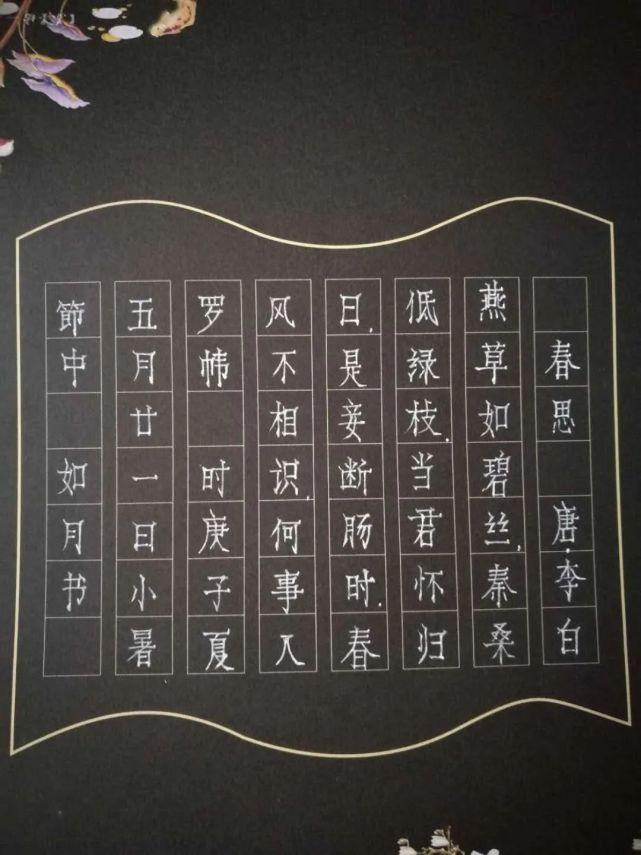 春思 唐·李白
燕草如碧丝,秦桑
低绿枝.当君怀归
日,是妾断肠时.春
风不相识,何事入
罗帏 时庚子夏
五月廿一日小暑
節中 如月书